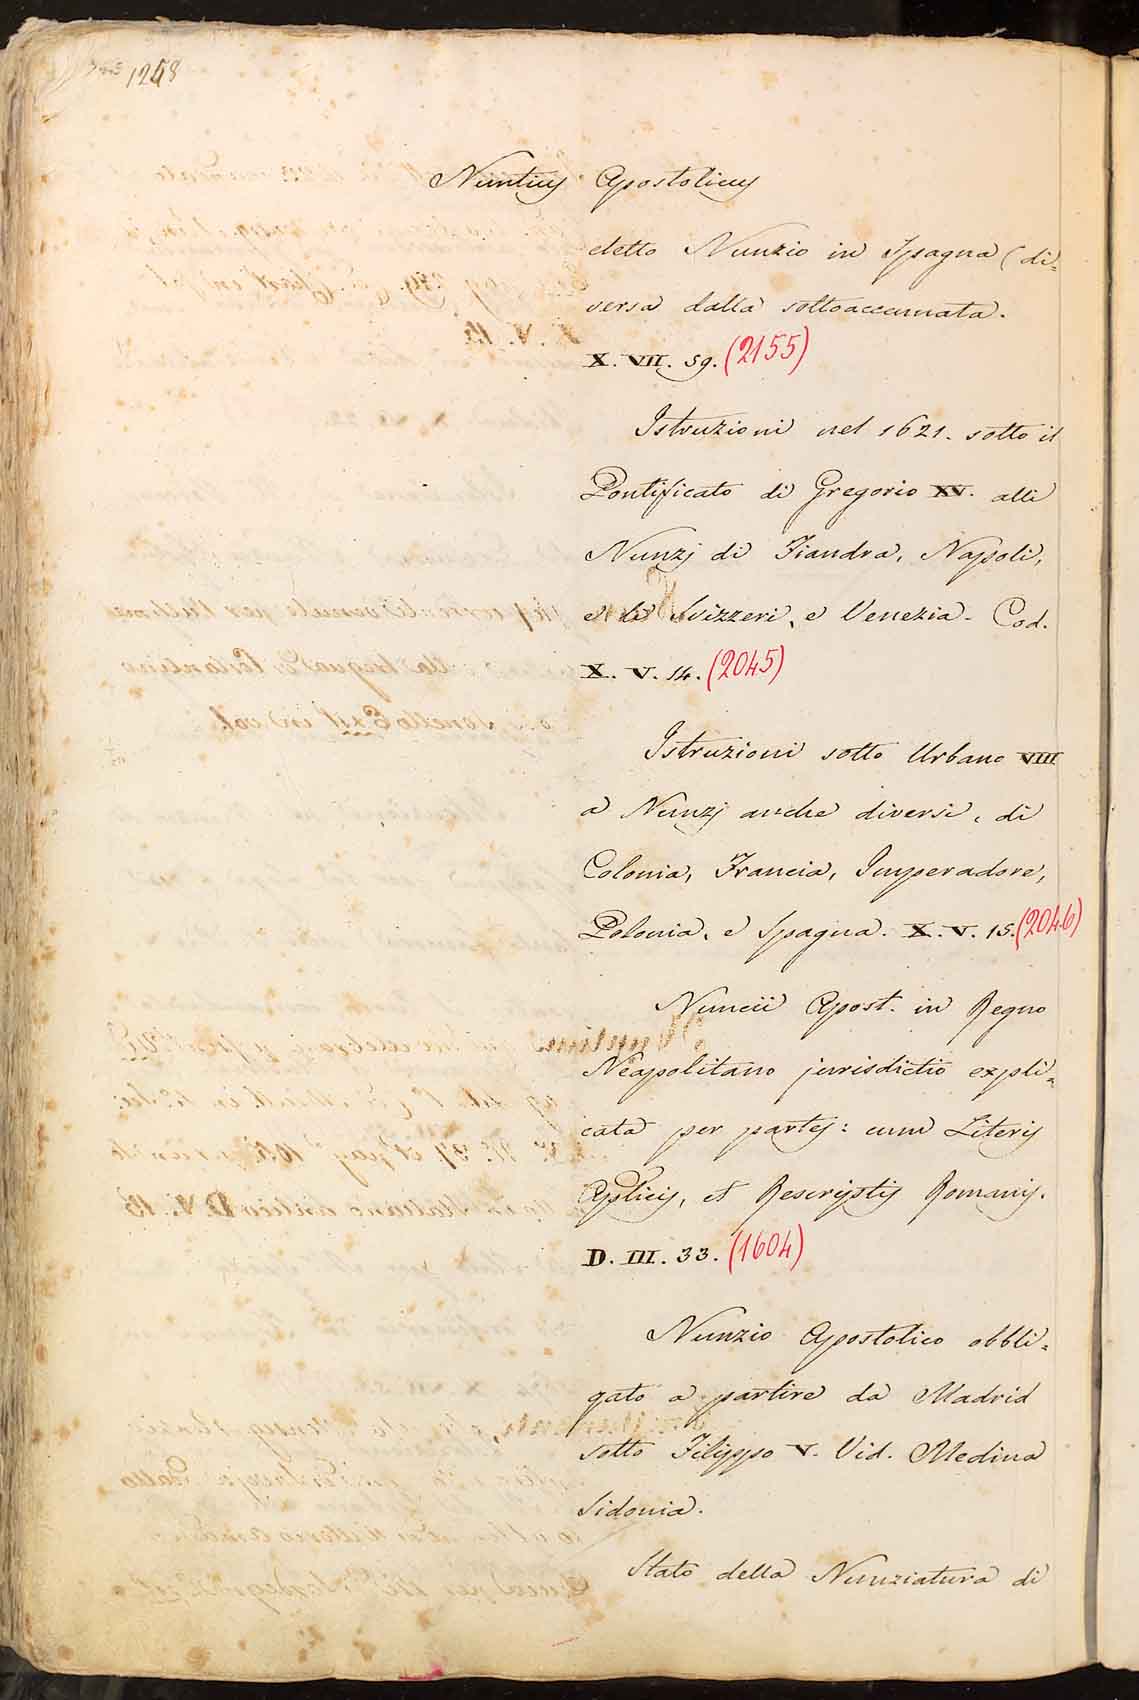 1268
Nuntius Apostolicus
detto Nunzio in Ispagna (di=
versa dalla sottoaccennata.
X. VII. 59. (2155)
Istruzioni nel 1621. sotto il
Pontificato di Gregorio XV. alli
Nunzj di Fiandra, Napoli,
e li Svizzeri, e Venezia. Cod.
X. V. 14. (2045)
Istruzioni sotto Urbano VIII
a Nunzj anche diversi, di
Colonia, Francia, Imperadore,
Polonia, e Spagna. X. V. 15. (2046)
Nuncii Apost. in Regno
Neapolitano jurisdictio expli=
cata per partes: cum Literis
Aplicis, et Rescriptis Romanis.
D. III. 33. (1604)
Nunzio Apostolico obbli=
gato a partire da Madrid
sotto Filippo V. Vid. Medina
Sidonia.
Stato della Nunziatura di